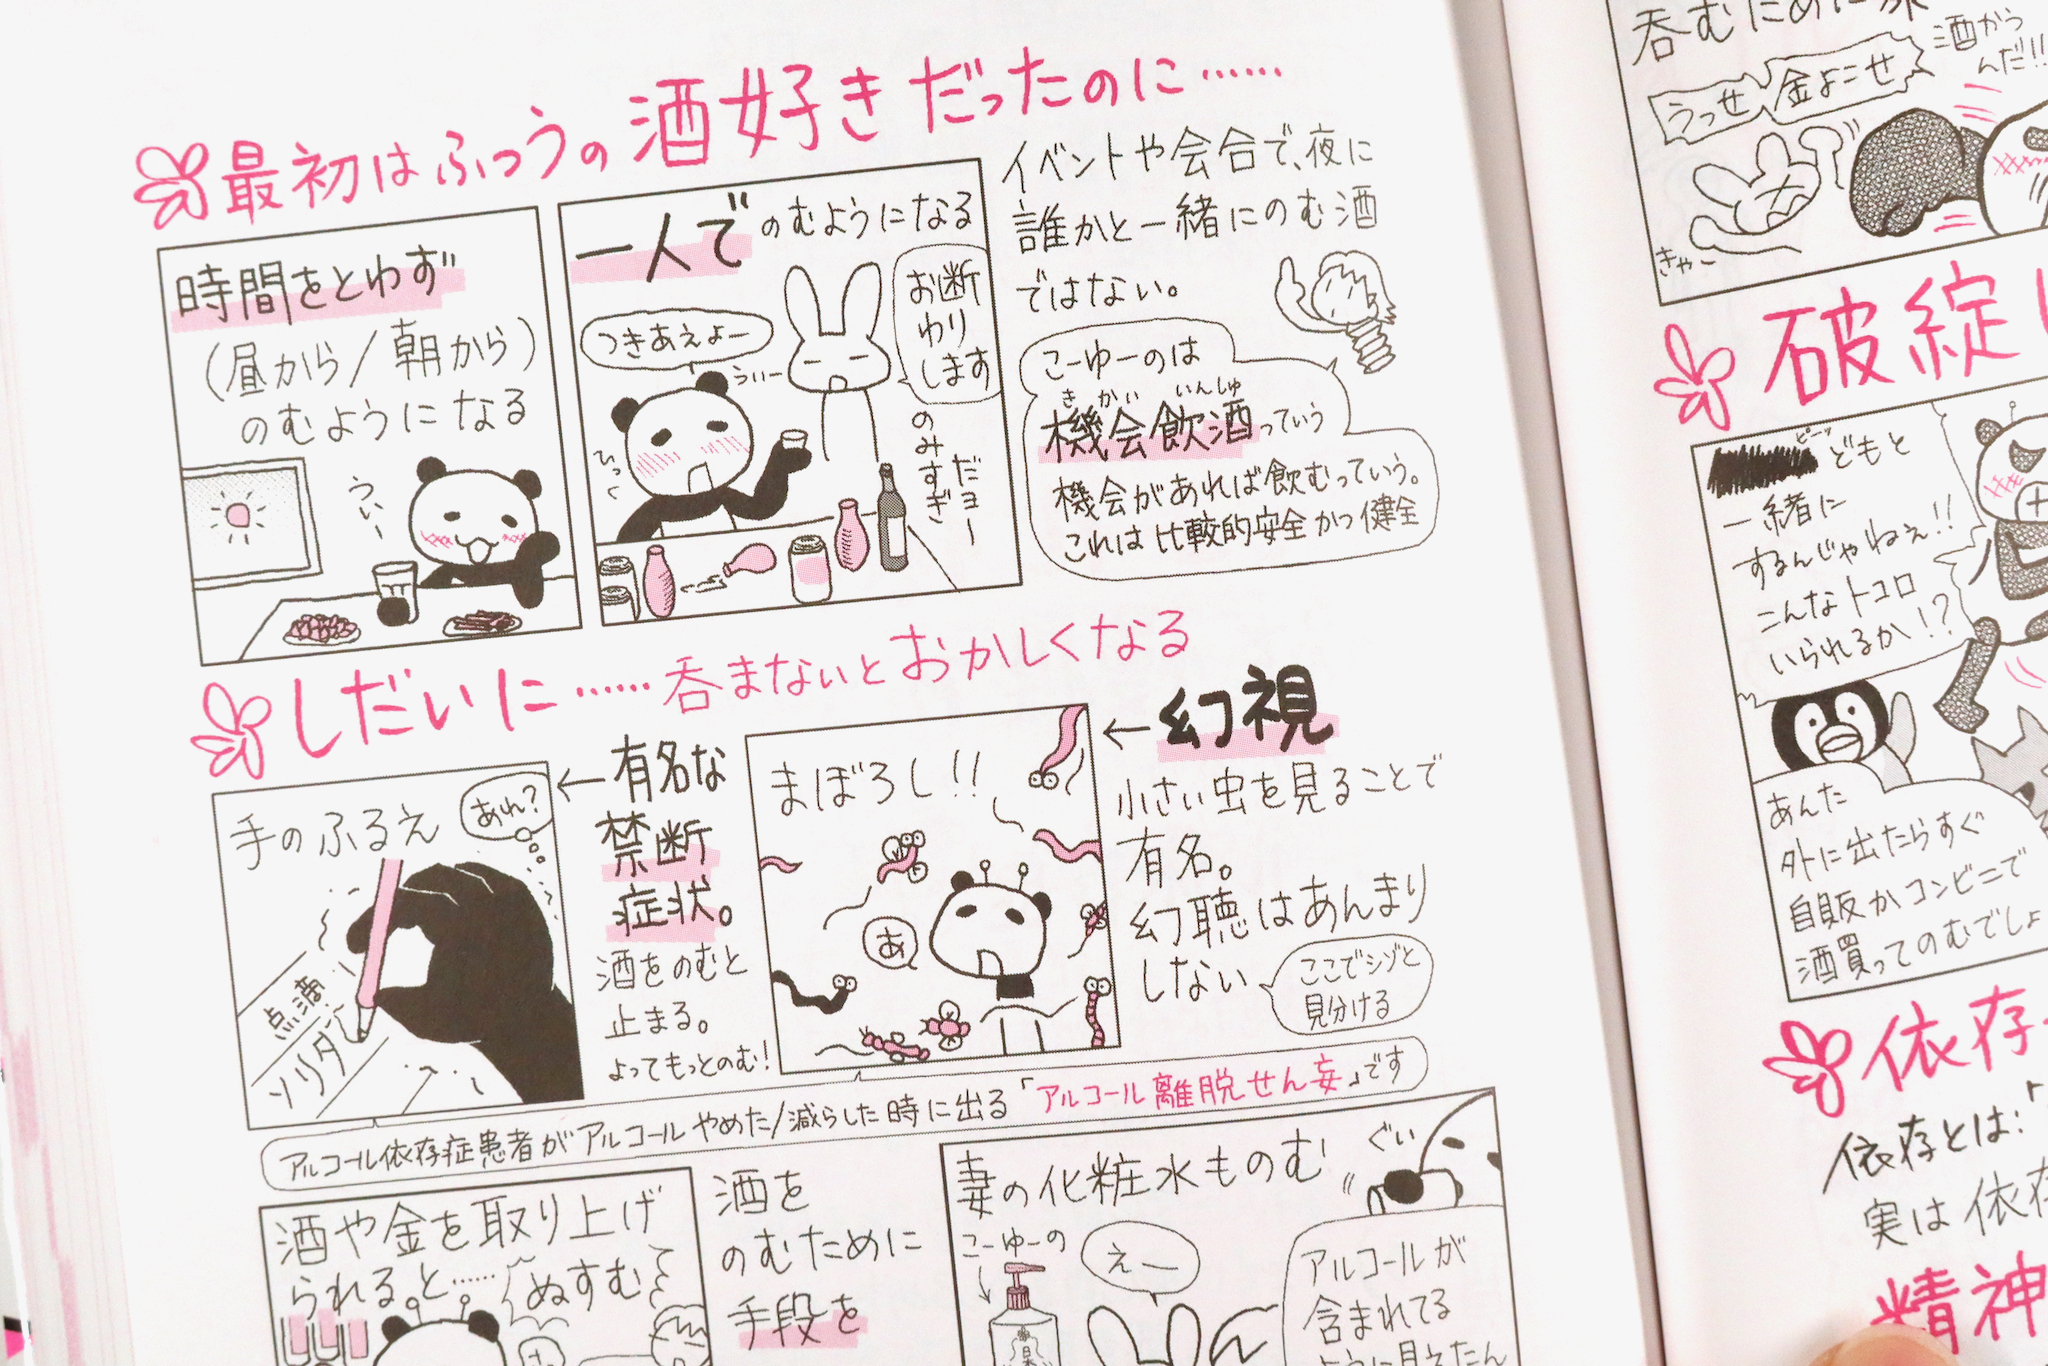 最初はふつうの酒好きだったのに……
時間をとわず
（昼から/朝から）
のむようになる
うぃー
一人でのむようになる
つきあえよー
うぃー
お断
わり
します
ひっく
のみすぎ
だョー
イベントや会合で、夜に
誰かと一緒にのむ酒
ではない。
こーゆーのは
きかいいんしゅ
機会飲酒っていう
機会があれば飲むっていう。
これは比較的安全かつ健全
しだいに……呑まないとおかしくなる
手のふるえ
あれ?
点滴
ソリタ
←有名な
禁断
症状。
酒をのむと
止まる。
よってもっとのむ!
まぼろし!!
あ
←幻視
小さい虫を見ることで
有名。
幻聴はあんまり
しない
ここでシゾと
見分ける
アルコール依存症患者がアルコールやめた/減らした時に出る「アルコール離脱せん妄」です
酒や金を取り上げ
られると……
ぬすむ
酒を
のむために
手段を
妻の化粧水ものむ
こーゆーの
えー
ぐい
アルコールが
含まれてる
呑むために
酒から
んだ!!
うっせ
金よこせ
きゃー
破綻し
ピーッ
どもと
一緒に
するんじゃねぇ!!
こんなトコロ
いられるか!?
あんた
外に出たらすぐ
自販かコンビニで
酒買ってのむでしょ
依存
依存とは:「
実は依存
精神